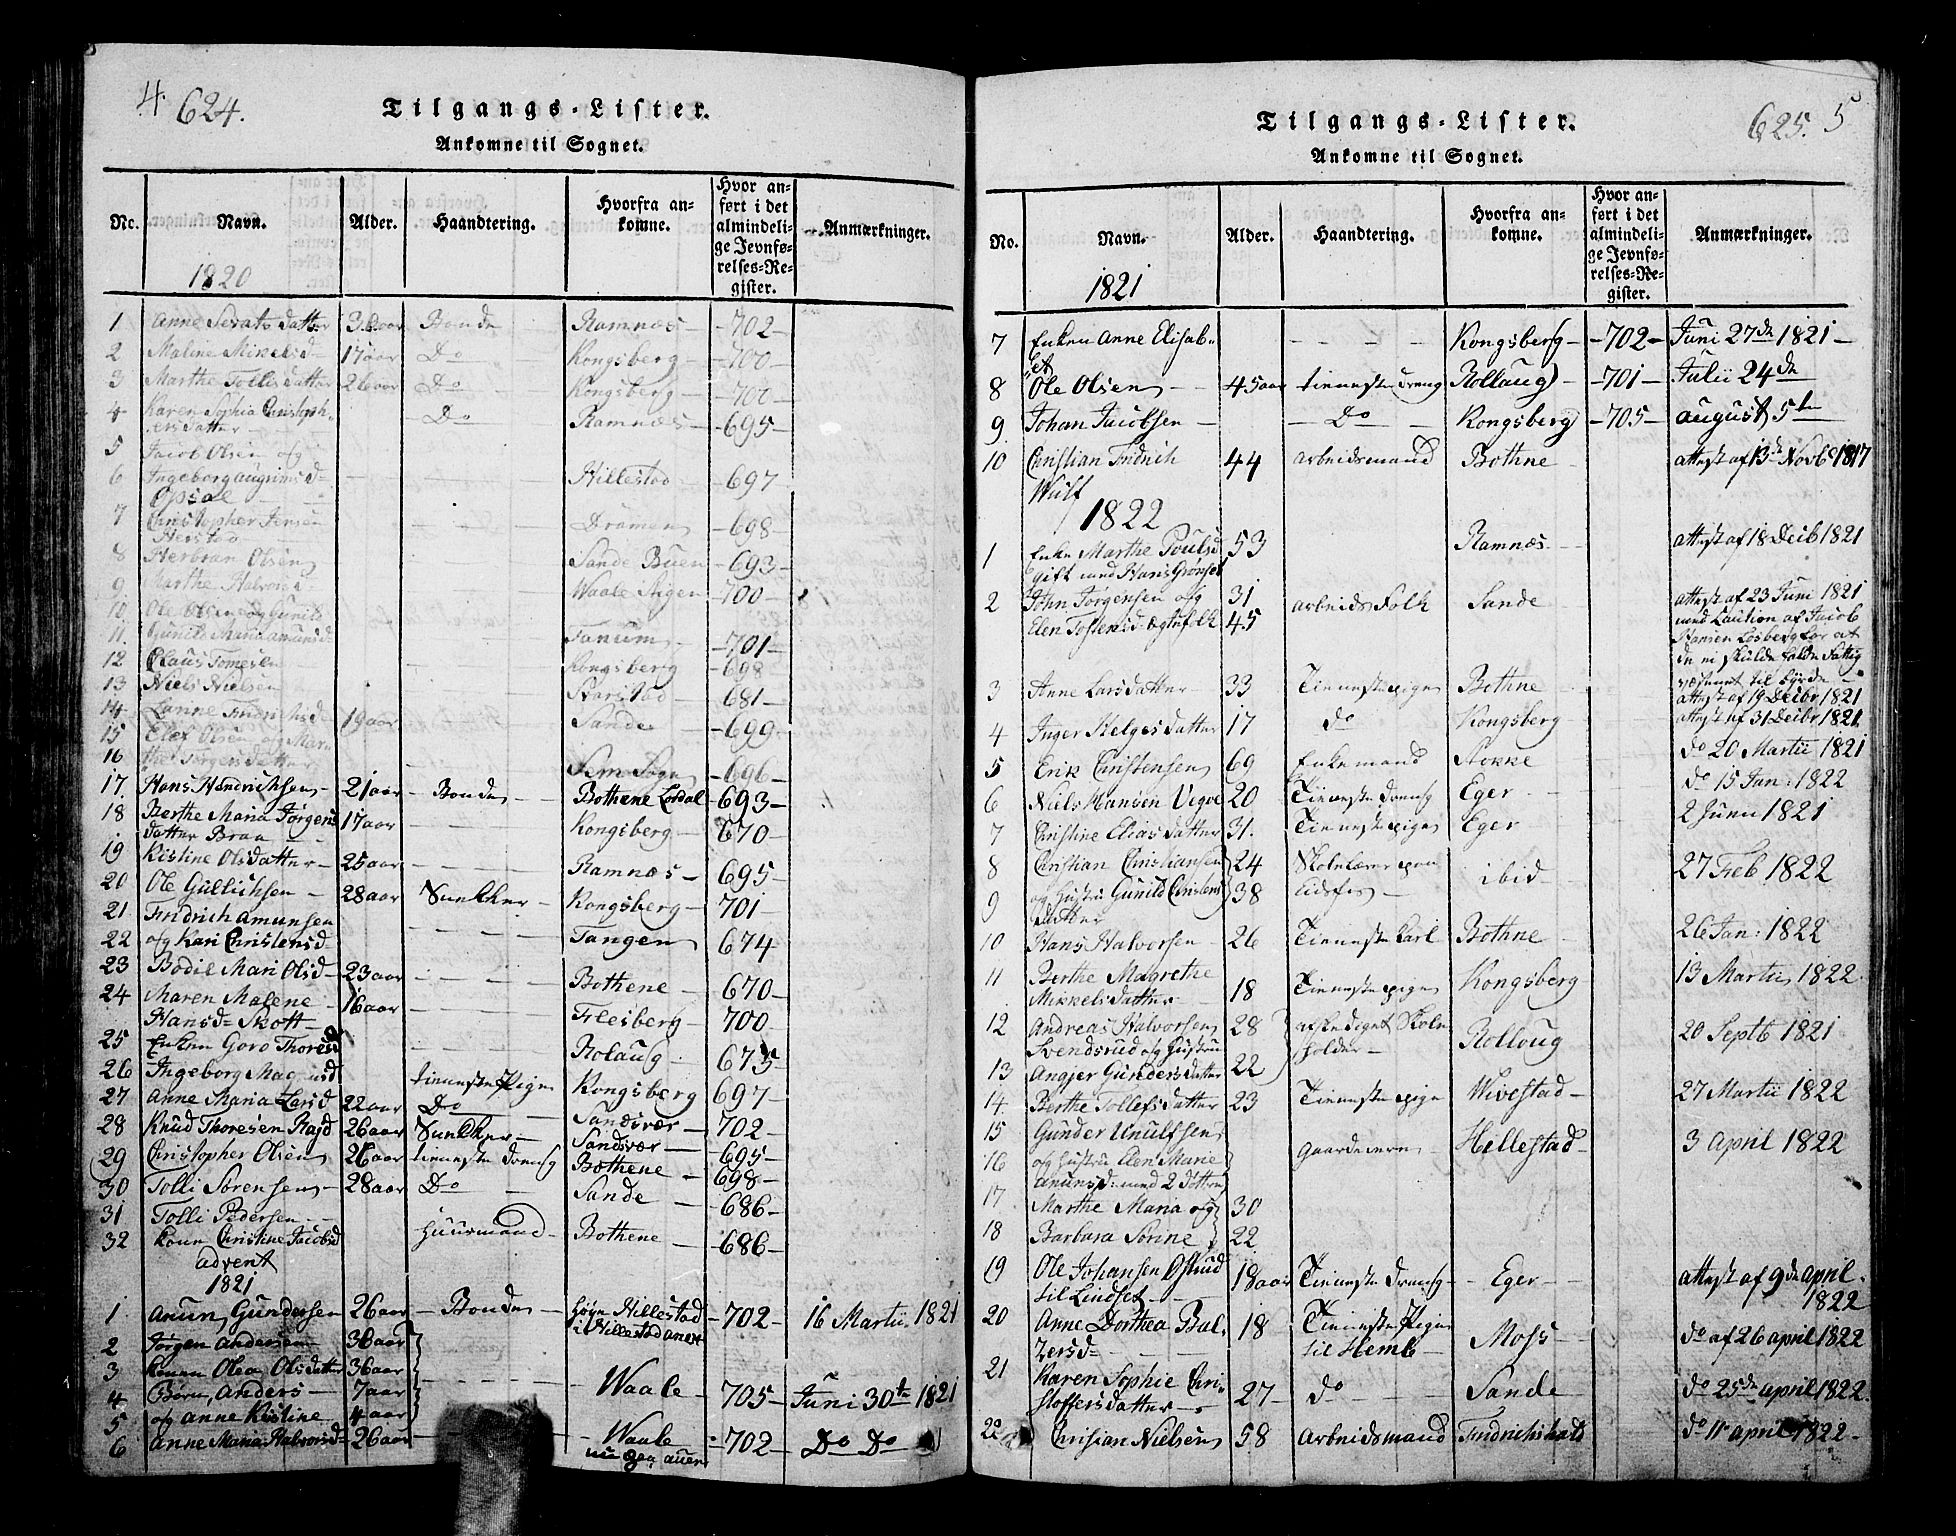 4. 624.
Tilgangs-Lister.
Ankomne til Sognet.
No. Navn. Alder. Haandtering. Hvorfra ankomne. Hvor anført i det almindelige Jevnførelses-Register. Anmærkninger.
1820
1 Anne datter aar Bonde Ramnæs 702
2 Maline Mikelsd 17 aar Do Kongsberg 700
3 Marthe Tollisdatter 26 aar Do Kongsberg 700
4 Karen Sophia Christoph- Do Ramnæs 695
ersdatter
5 Jacob Olsen og
6 Ingeborg d Hillestad 697
Opsal
7 Christopher Jensen Dramen 698
8 Olsen Sande Buen 693
9 Marthe Halvorsd Waale 700
10 Ole Olsen og Gunild
11 Gunild Maria Amunsd Tanum 701
12 Claus Tomesen Kongsberg 698
13 Niels Nielsen 681
14 Fridrichsd 19 aar Sande 699
15 Olsen og Mar-
16 the Jørgensdatter Sem Sogn 696
17 Hans Hendrichsen 21 aar Bonde Bothene 693
18 Berthe Maria Jørgens 17 aar Kongsberg 670
datter Braa
19 Kistine Olsdatter 25 aar Ramnæs 695
20 Ole Gullichsen 28 aar Kongsberg 701
21 Fridrich Amunsen
22 og Kari Christensd Tangen 674
23 Bodil Mari Olsd 23 aar Bothene 670
24 Maren Malene 16 aar Flesberg 700
Hansd Skott
25 Enken Goro Thoresd Rolaug 673
26 Ingeborg tieneste Pige Kongsberg 697
27 Anne Maria Larsd 22 aar Do Sandsvær 702
28 Knud Thoresen 26 aar Sandsvær 695
29 Christopher Olsen 26 aar tieneste dreng Bothene 698
30 Tolli Sørensen 28 aar Do Sande 686
31 Tolli Pedersen
32 kone Christine Jacobsd Huusmand Bothene 686
advent
1821
1 Anun Gundersen 26 aar Bonde Hillestad 702 16 Martii 1821
i Hillestad
2 Jørgen Andersen 38 aar
3 konen Olea Olsdatter 36 aar
4 Børn, Anders 7 aar Waale 705 Juni 30te 1821
5 og Anne Kistine 4 aar
6 Anne Maria Halvorsd 26 aar Waale 702 Do Do
625. 5
Tilgangs-Lister.
Ankomne til Sognet.
No. Navn. Alder. Haandtering. Hvorfra ankomne. Hvor anført i det almindelige Jevnførelses-Register. Anmærkninger.
1821
7 Enken Anne Elisab- Kongsberg 702 Juni 27de 1821
et
8 Ole Olsen 45 aar tieneste dreng Rollaug 701 Julii 24de
9 Johan Jacobsen Do Kongsberg 705 august 5te
10 Christian Fridrich 44 arbeidsmand Bothne attest af 13de Novbr 1817
Wulf
1822
1 Enke Marthe Poulsd 53 Ramnæs attest af 18 Decb 1821
gift med Hans Grønset
2 John Jørgensen og 31 arbeids Folk Sande attest af 23 Juni 1821
Elen Tostensd Ægtefolk 45 med Caution af Jacob
Hansen Løsberg for at
de ei skulde falde Fattig
væsenet til Byrde
3 Anne Larsdatter 33 Tieneste pige Bothne attest af 19 Decbr 1821
4 Inger Helgesdatter 17 do Kongsberg attest af 31 Decbr 1821
5 Erik Christensen 69 Enkemand Stokke do 20 Martii 1821
6 Niels Hansen 20 Tieneste dreng Eger do 15 Jan: 1822
7 Christine Eliasdatter 31. Tieneste pige Eger 2 Juni 1821
8 Christian Christiansen 24 Skolelærer ibid 27 Feb 1822
9 og Hustru Gunild Christens 38
datter
10 Hans Halvorsen 26 Tieneste karl Bothne 26 Jan: 1822
11 Berthe Magrethe Kongsberg 13 Martii 1822
Mikkelsdatter 18 Tieneste pige
12 Andreas Halvorsen 28 afskediget Skole Rolloug 20 Septb 1821
Svendsrud og Hustru holder
13 Angjer Gundersdatter 22
14 Berthe Tollefsdatter 23 Tieneste pige Wivestad 27 Martii 1822
15 Gunder Unulfsen Gaardeiere Hellestad 3 April 1822
16 og Hustru Elen Marie
Anunsd: med 2 Døttre
17 Marthe Maria og 30
18 Barbara Sørine 22
19 Ole Johansen 18 aar Tieneste dreng Eger attest af 9de April
til Lindset 1822
20 Anne Dorthea Bal- 18 Tieneste Pige Moss do af 26 april 1822
zersd til Hemb
21 Karen Sophie Chri-
stoffersdatter 27 do Sande do 25de april 1822
22 Chrisian Nielsen 58 Arbeidsmand Fridrichshald do 11 april 1822